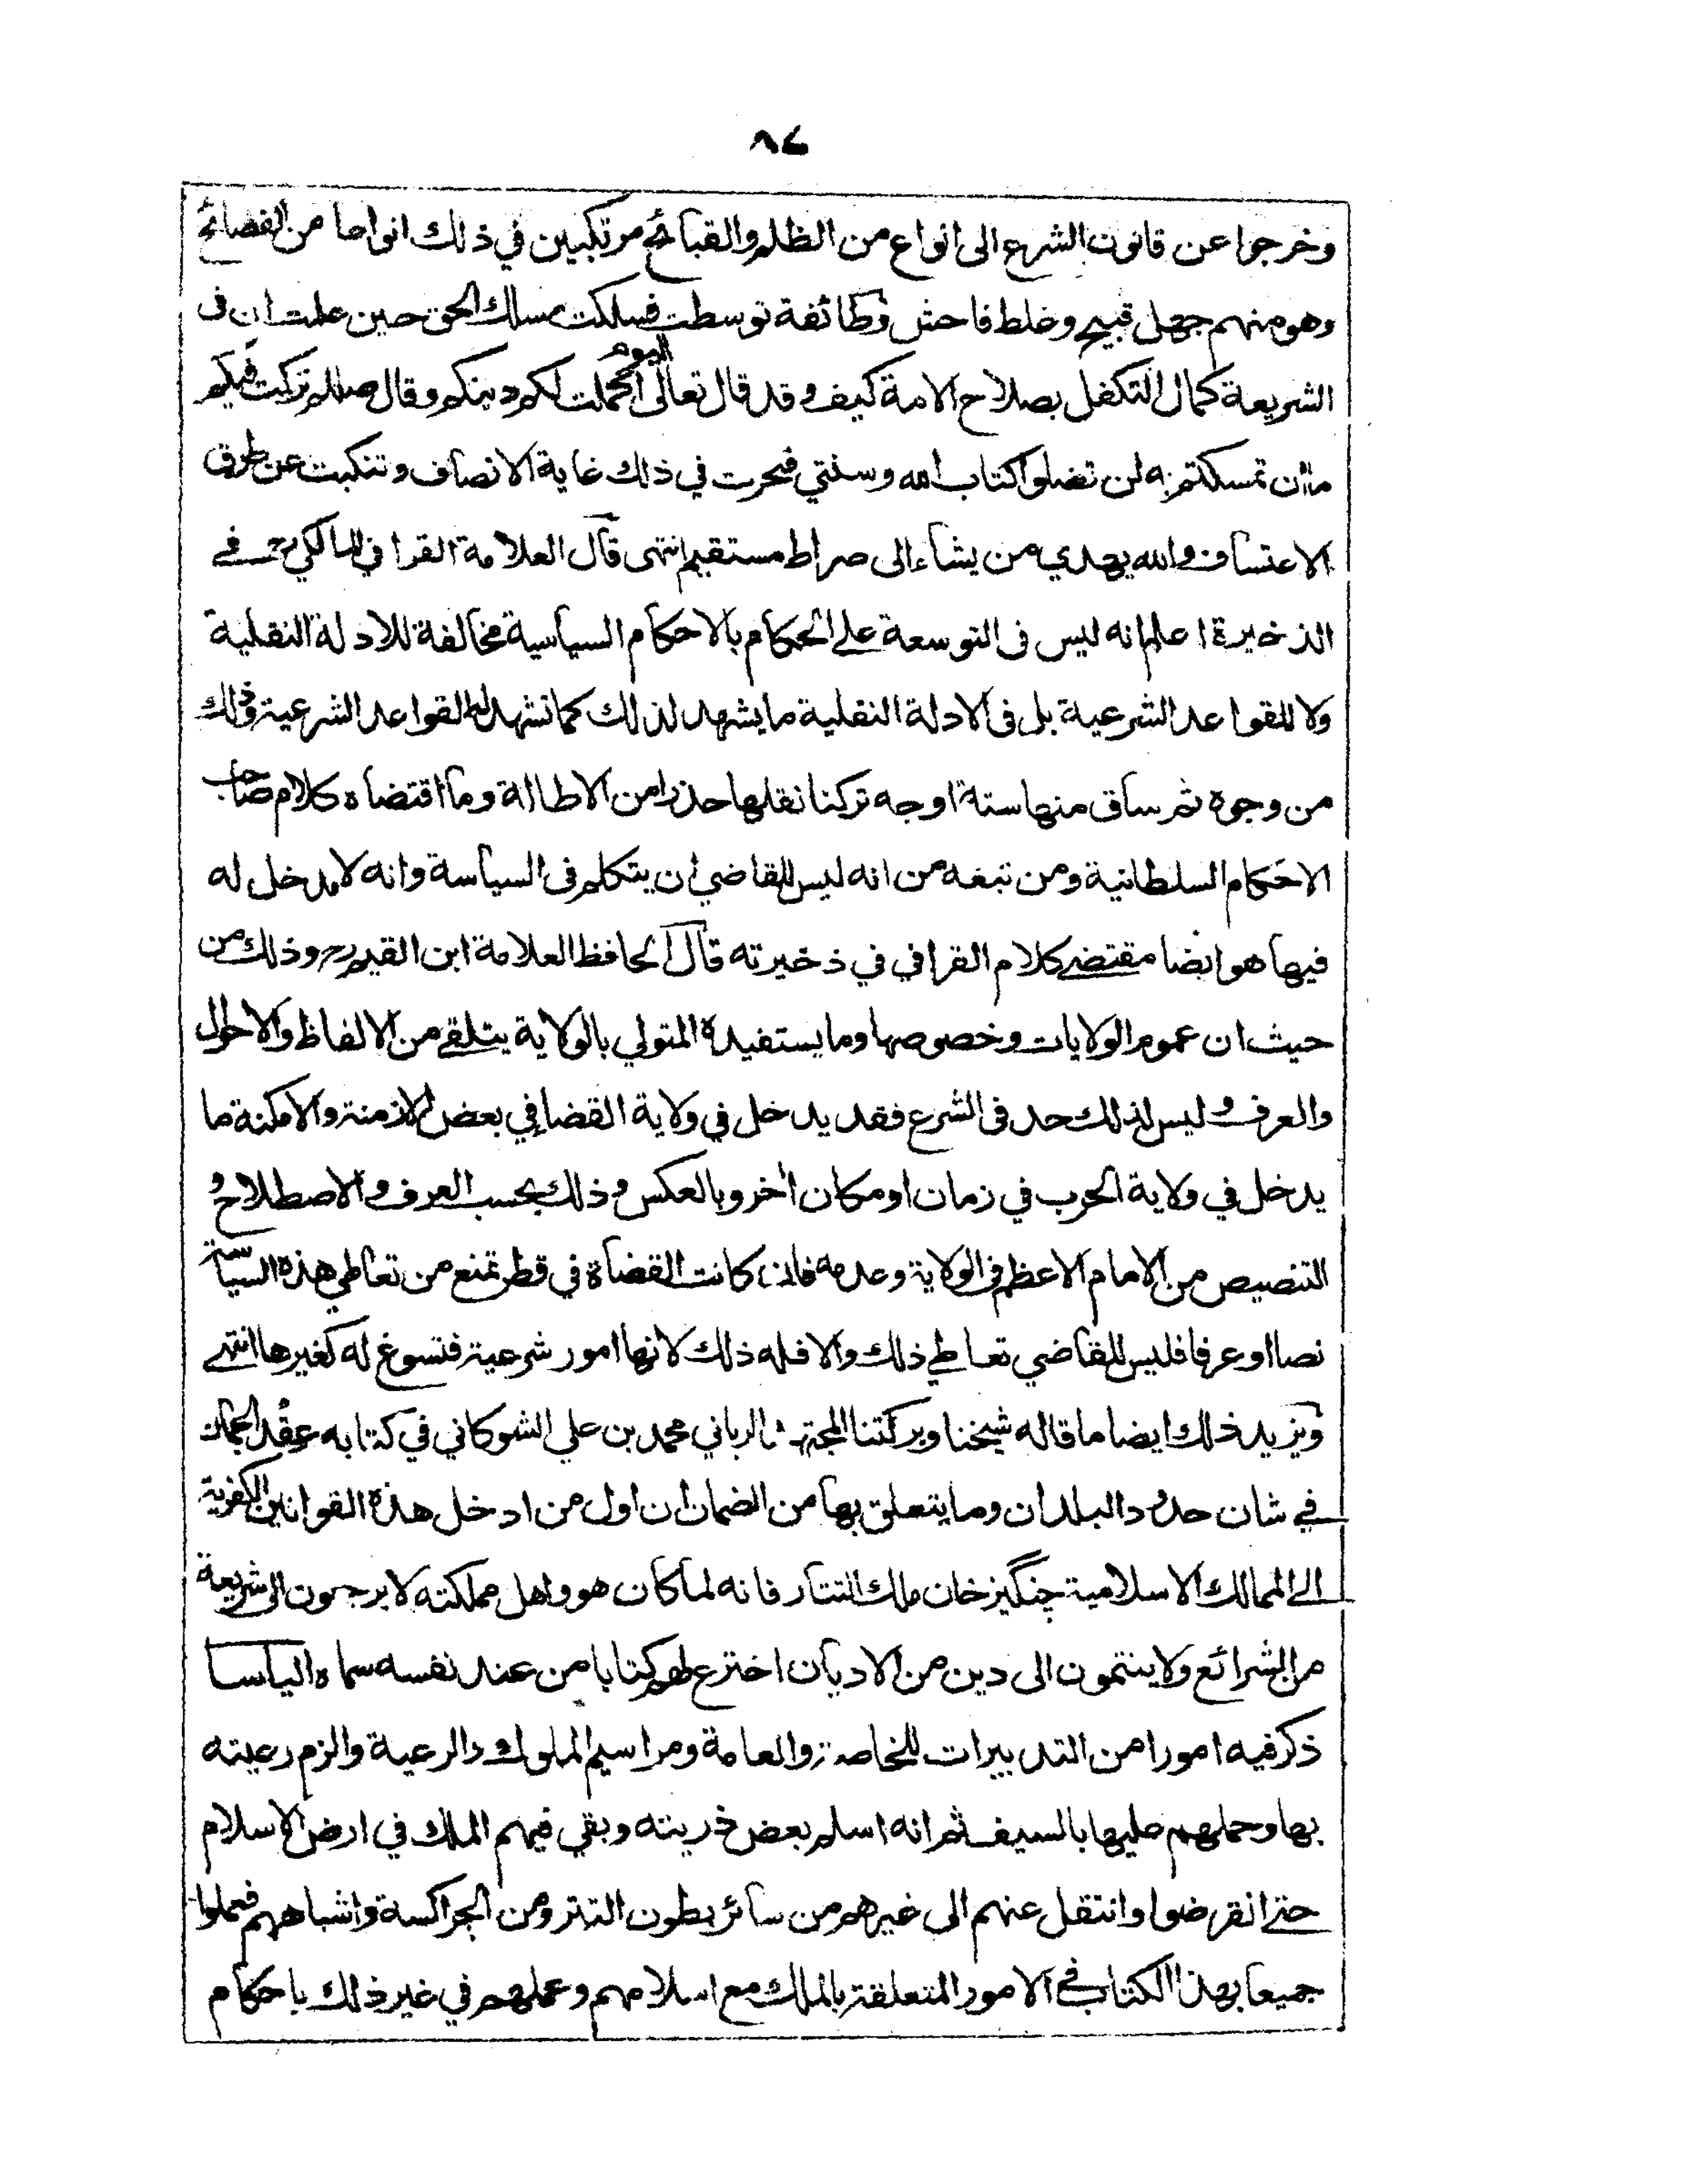 ٨٤
وخرجوا عن قانون الشرع الى انواع من الظلم والقبائح مرتكبين في ذلك انواعا من الفضائح
وهو منهم جهل قبيح وخلط فاحش وطائفة توسطت فسلكت مسلك الحق حين علمت ان في
الشريعة كمال التكفل بصلاح الامة كيف وقد قال تعالى اليوم اكملت لكم دينكم وقال صللم تركت فيكم
ما ان تمسكتم به لن تضلوا كتاب الله وسنتي فتحرت في ذلك غاية الانصاف وتنكبت عن طرق
الاعتساف والله يهدي من يشاء الى صراط مستقيم انتهى قال العلامة القرافي المالكي رح في
الذخيرة اعلم انه ليس في التوسعة على الحكام بالاحكام السياسية مخالفة للادلة النقلية
ولا للقواعد الشرعية بل في الادلة النقلية ما يشهد لذلك كما تشهد له القواعد الشرعية وذلك
من وجوه ثم ساق منها ستة اوجه تركنا نقلها حذرا من الاطالة وما اقتضاه كلام صاحب
الاحكام السلطانية ومن تبعه من انه ليس للقاضي ان يتكلم في السياسة وانه لا مدخل له
فيها هو ايضا مقتضى كلام القرافي في ذخيرته قال الحافظ العلامة ابن القيم رح وذلك من
حيث ان عموم الولايات وخصوصها وما يستفيده المتولي بالولاية يتلقى من الالفاظ والاحوال
والعرف وليس لذلك حد في الشرع فقد يدخل في ولاية القضا في بعض الازمنة والامكنة ما
يدخل في ولاية الحرب في زمان او مكان اخر وبالعكس وذلك بحسب العرف والاصطلاح و
التنصيص من الامام الاعظم في الولاية وعدمه فاذا كانت القضاة في قطر تمنع من تعاطي هذه السياسة
نصا او عرفا فليس للقاضي تعاطي ذلك والا فله ذلك لانها امور شرعية فتسوغ له كغيرها انتهى
ويزيد ذلك ايضا ما قاله شيخنا وبركتنا المجتهد الرباني محمد بن علي الشوكاني في كتابه عقد الجمان
في شان حدود البلدان وما يتعلق بها من الضمان ان اول من ادخل هذه القوانين الكفرية
الى الممالك الاسلامية چنگيز خان ملك التتار فانه لما كان هو واهل مملكته لا يرجعون الى شريعة
من الشرائع ولا ينتمون الى دين من الاديان اخترع لهم كتابا من عند نفسه سماه الياسا
ذكر فيه امورا من التدبيرات للخاصة والعامة ومراسيم الملوك والرعية والزم رعيته
بها وحملهم عليها بالسيف ثم انه اسلم بعض ذريته وبقي فيهم الملك في ارض الاسلام
حتى انقرضوا وانتقل عنهم الى غيرهم من سائر بطون التتر ومن الجراكسة واشباههم فعملوا
جميعا بهذا الكتاب في الامور المتعلقة بالملك مع اسلامهم وعملهم في غير ذلك باحكام